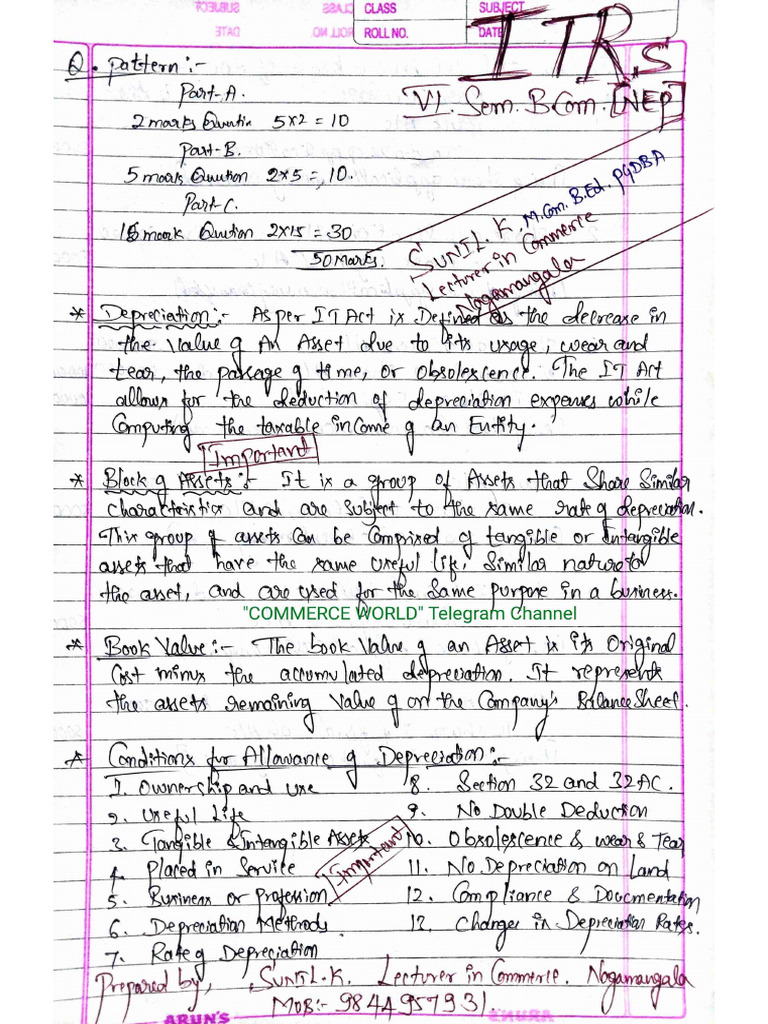 CLASS SUBJECT
ROLL NO. DATE
ITRs
Q. Pattern :-
VI. Sem. B.Com. [NEP]
Part-A.
2 marks Questin 5x2 = 10
Part-B.
5 marks Qustion 2x5 = 10.
Part-C.
15 mark Qustion 2x15 = 30
50 Marks.
SUNIL. K. M.Com. B.Ed. PGDBA
Lecturer in Commerce
Nagamangala
* Depreciation:- As per IT Act is Defined as the decrease in
the Value of An Asset due to its usage, wear and
tear, the passage of time, or obsolescence. The IT Act
allows for the deduction of depreciation expenses while
Computing the taxable income of an Entity.
Important
* Block of Assets:- It is a group of Assets that Share Similar
characteristics and are subject to the same rate of depreciation.
This group of assets can be Comprised of tangible or Intangible
assets that have the same useful life, Similar nature to
the asset, and are used for the same purpose in a business.
"COMMERCE WORLD" Telegram Channel
* Book Value:- The book Value of an Asset is its Original
Cost minus the accumulated depreciation. It represents
the assets remaining Value of on the Company's Balance Sheet.
* Conditions for Allowance of Depreciation:-
1. Ownership and use
2. Useful Life
3. Tangible & Intangible Assets
4. Placed in Service
5. Business or Profession
6. Depreciation Methods.
7. Rate of Depreciation
8. Section 32 and 32AC.
9. No Double Deduction
10. Obsolescence & wear & Tear
11. No. Depreciation on Land
12. Compliance & Documentation
13. Changes in Depreciation Rates.
Important
Prepared by, SUNIL.K. Lecturer in Commerce. Nagamangala
MOB:- 9844957931.
ARUN'S